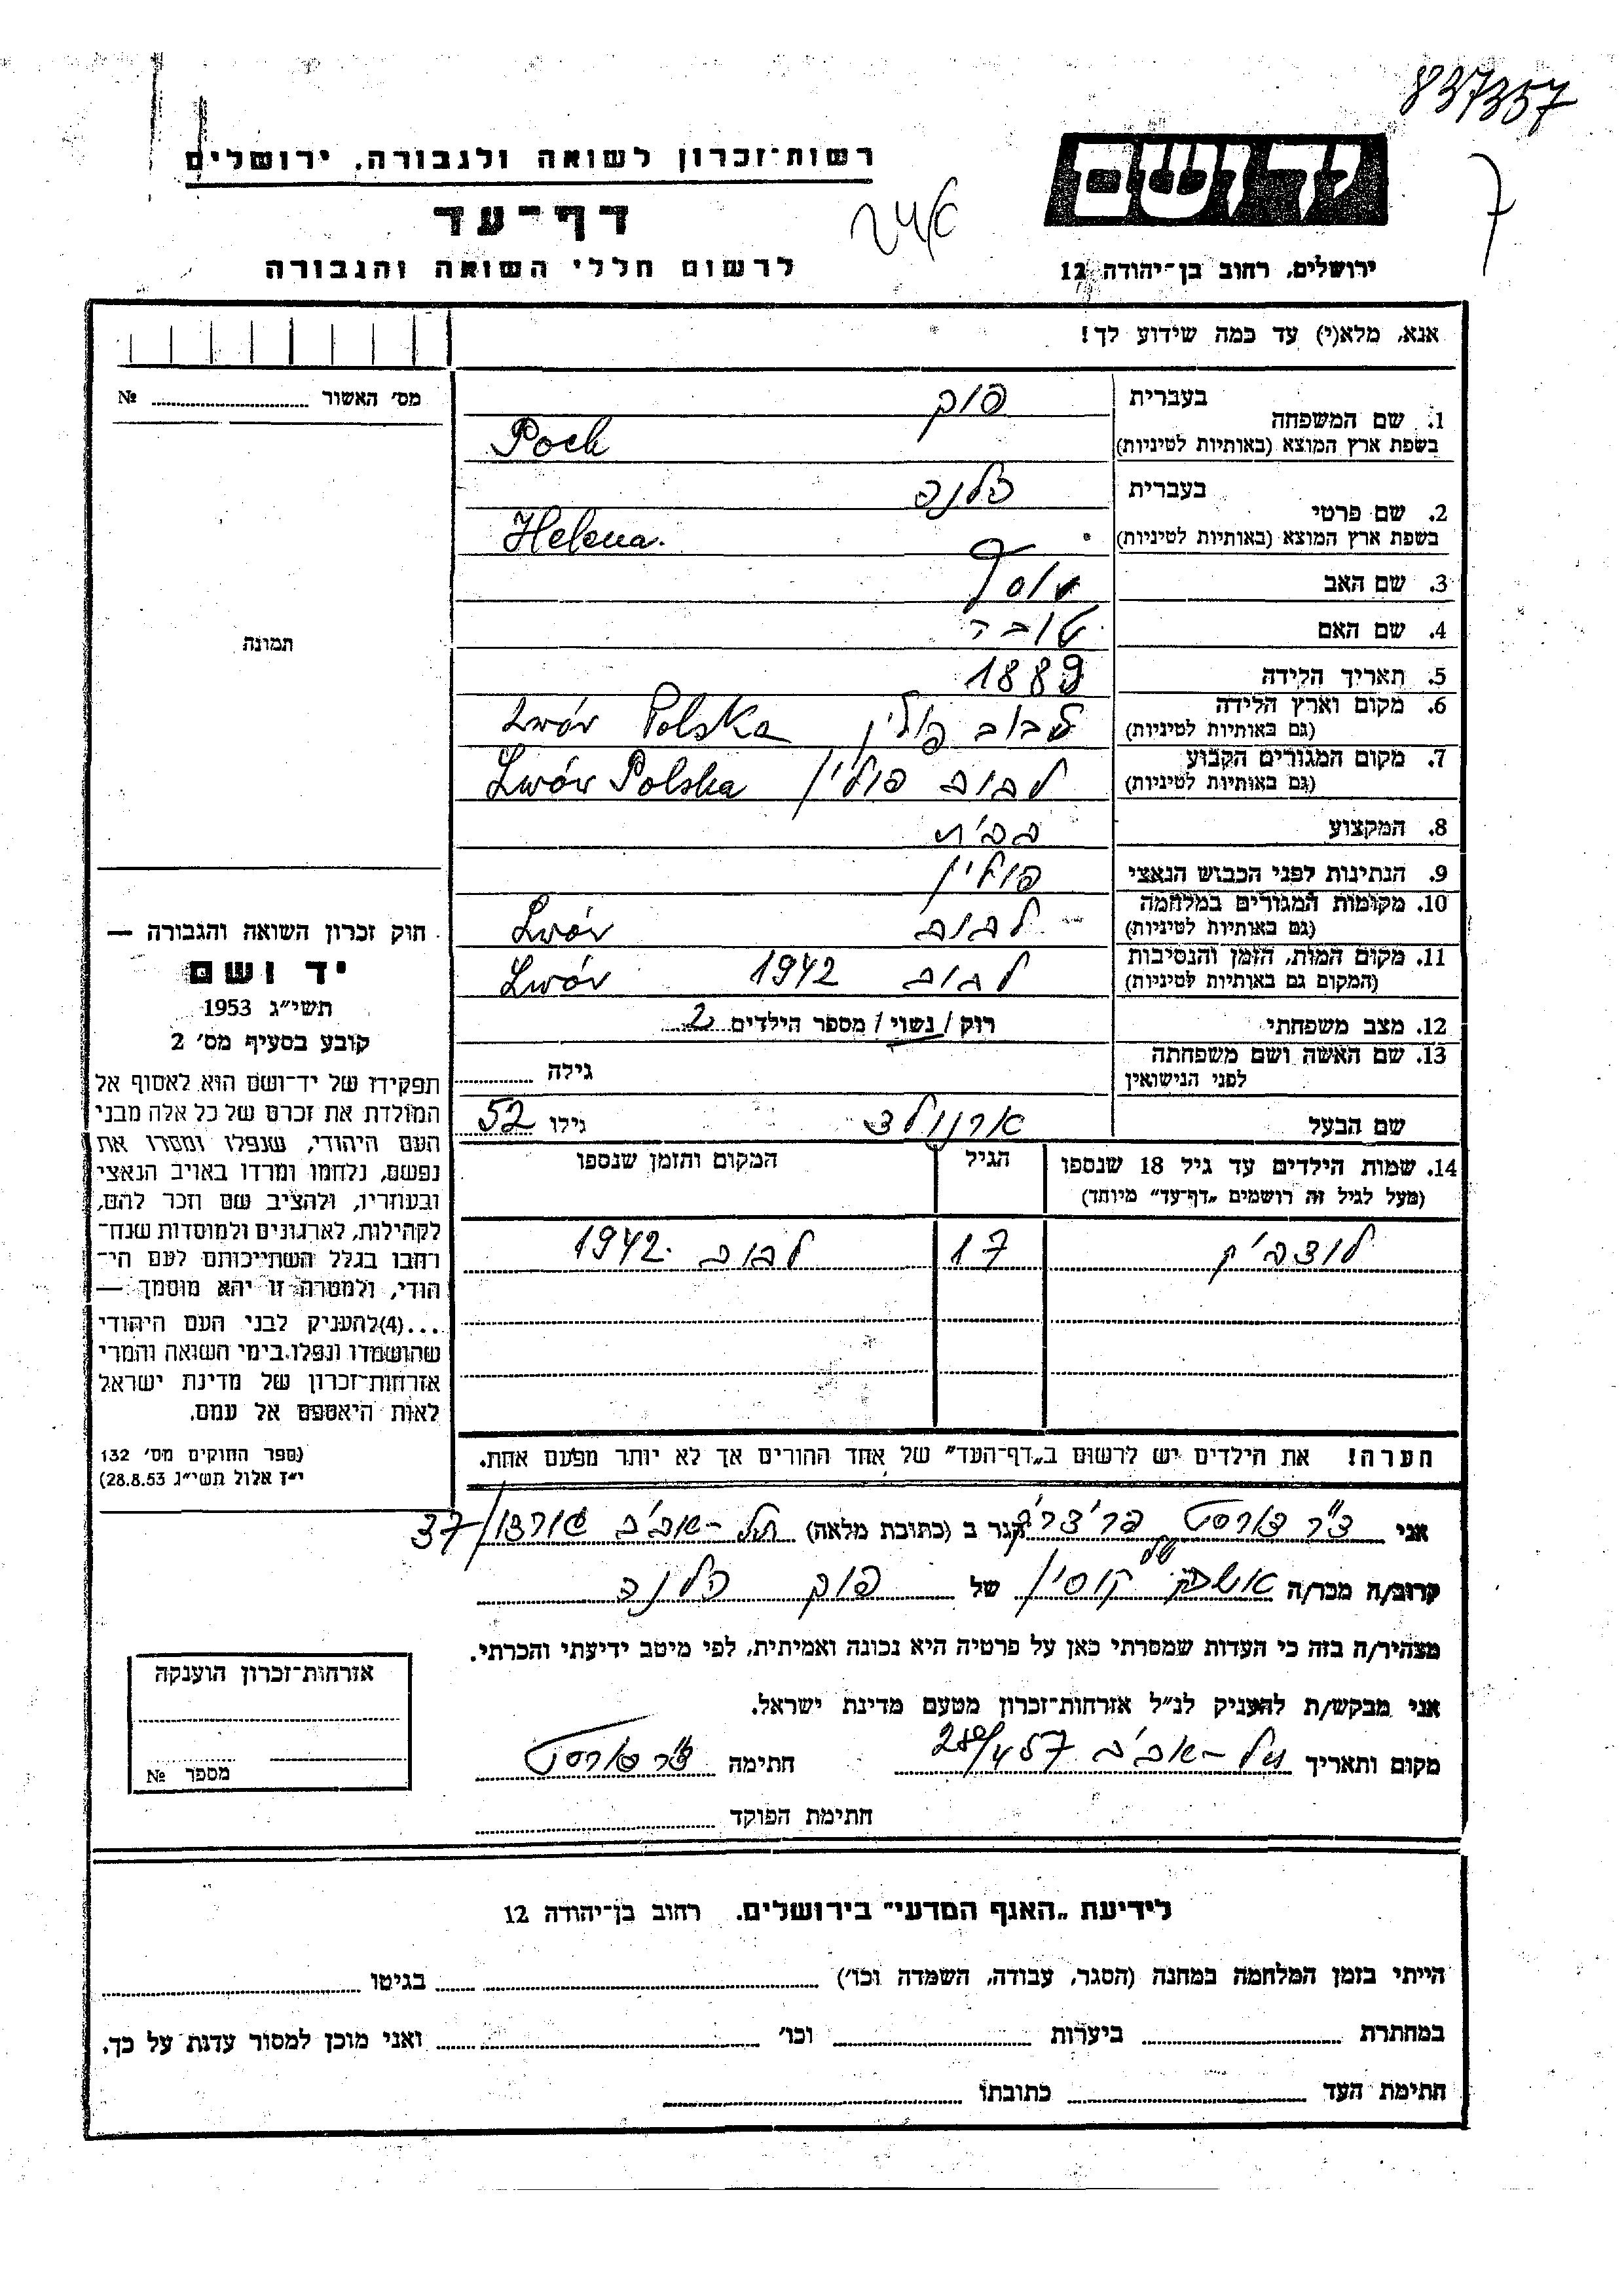 837357
7
יד ושם
רשות־זכרון לשואה ולגבורה, ירושלים
דף־עד
לרשום חללי השואה והגבורה
ירושלים, רחוב בן־יהודה 12
אנא, מלא(י) עד כמה שידוע לך!
מס' האשור № 
1. שם המשפחה בעברית פוק
בשפת ארץ המוצא (באותיות לטיניות) Poch
2. שם פרטי בעברית הלנה
בשפת ארץ המוצא (באותיות לטיניות) Helena.
3. שם האב יוסף
4. שם האם טובה
תמונה
5. תאריך הלידה 1889
6. מקום וארץ הלידה (גם באותיות לטיניות) לבוב פולין Lwów Polska
7. מקום המגורים הקבוע (גם באותיות לטיניות) לבוב פולין Lwów Polska
8. המקצוע
9. הנתינות לפני הכבוש הנאצי פולין
10. מקומות המגורים במלחמה (גם באותיות לטיניות) לבוב Lwów
11. מקום המות, הזמן והנסיבות (המקום גם באותיות לטיניות) לבוב 1942 Lwów
12. מצב משפחתי רוק / נשוי / מספר הילדים 2
13. שם האשה ושם משפחתה לפני הנישואין גילה
שם הבעל ארנולד גילו 52
14. שמות הילדים עד גיל 18 שנספו הגיל המקום והזמן שנספו
(מעל לגיל זה רושמים „דף־עד" מיוחד)
לודביק 17 לבוב 1942.
הערה! את הילדים יש לרשום ב„דף־העד" של אחד ההורים אך לא יותר מפעם אחת.
חוק זכרון השואה והגבורה —
יד ושם
תשי"ג 1953
קובע בסעיף מס' 2
תפקידו של יד־ושם הוא לאסוף אל
המולדת את זכרם של כל אלה מבני
העם היהודי, שנפלו ומסרו את
נפשם, נלחמו ומרדו באויב הנאצי
ובעוזריו, ולהציב שם וזכר להם,
לקהילות, לארגונים ולמוסדות שנח־
רבו בגלל השתייכותם לעם הי־
הודי, ולמטרה זו יהא מוסמך —
...(4) להעניק לבני העם היהודי
שהושמדו ונפלו בימי השואה והמרי
אזרחות־זכרון של מדינת ישראל
לאות היאספם אל עמם.
(ספר החוקים מס' 132
י"ז אלול תשי"ג 28.8.53)
אני ד"ר הורסט הגר ב (כתובת מלאה) תל־אביב גורדון 37
קרוב/ה מכר/ה של פוק הלנה
מצהיר/ה בזה כי העדות שמסרתי כאן על פרטיה היא נכונה ואמיתית, לפי מיטב ידיעתי והכרתי.
אני מבקש/ת להעניק לנ"ל אזרחות־זכרון מטעם מדינת ישראל.
מקום ותאריך תל־אביב חתימה ד"ר הורסט
חתימת הפוקד
אזרחות־זכרון הוענקה
מספר №
לידיעת „האגף המדעי" בירושלים. רחוב בן־יהודה 12
הייתי בזמן המלחמה במחנה (הסגר, עבודה, השמדה וכו') בגיטו
במחתרת ביערות וכו' ואני מוכן למסור עדות על כך.
חתימת העד כתובתו